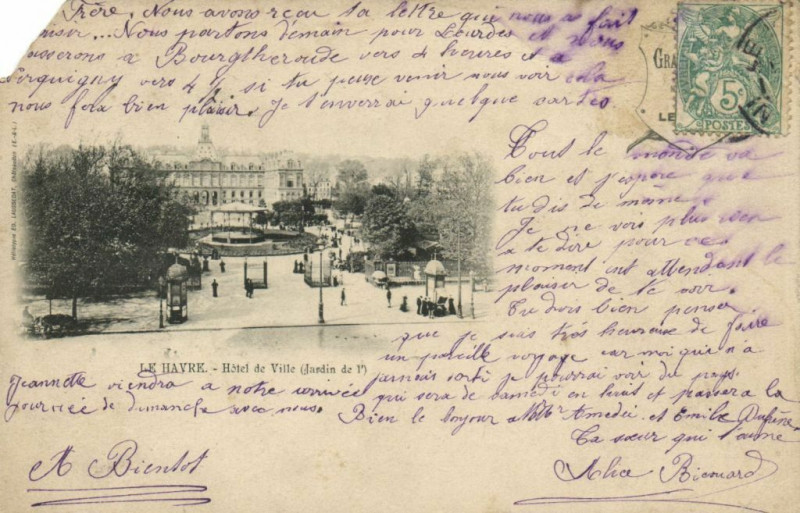 Frère, Nous avons reçu ta lettre que nous a fait
... Nous partons demain pour Lourdes et nous
asserons a Bourgtheroude vers 4 heures et a
erquigny vers 4 ½ si tu peuse venir nous voir cela
nous fera bien plaisir. Je t'enverrai quelque cartes
GRA
LE
5c
POSTES
Tout le monde va
bien et j'espère que
tu dis de même
Je ne vois plus rien
a te dire pour ce
moment ent attendant le
plaisir de te voir.
Tu dois bien penser
que je suis très heureuse de faire
un pareille voyage car moi qui n'a
jamais sorti je pourrai voir du pays.
LE HAVRE. - Hôtel de Ville (Jardin de l')
Jeannette viendra a notre arrivée qui sera de samedi en huit et passera la
journée de dimanche avec nous. Bien le bonjour a Amedée et Emile
Ta sœur qui t'aime
A Bientot
Alice